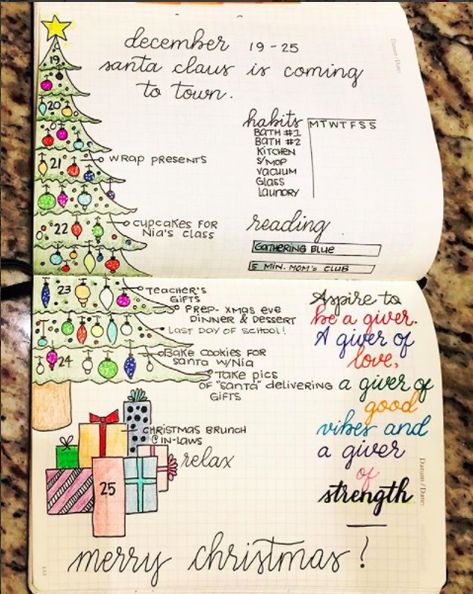 december 19 - 25
santa claus is coming
to town.
19
20
21
WRAP PRESENTS
22
CUPCAKES FOR
NIA'S CLASS
habits MTWTFSS
BATH #1
BATH #2
KITCHEN
S/MOP
VACUUM
GLASS
LAUNDRY
reading
GATHERING BLUE
5 MIN. MOM'S CLUB
23
TEACHER'S
GIFTS
PREP- XMAS EVE
DINNER & DESSERT
LAST DAY OF SCHOOL!
24
BAKE COOKIES FOR
SANTA W/NIA
TAKE PICS
OF "SANTA" DELIVERING
GIFTS
CHRISTMAS BRUNCH
@IN-LAWS
relax
25
Aspire to
be a giver.
A giver of
love,
a giver of
good
vibes and
a giver
of
strength
merry christmas!
Datum / Date: